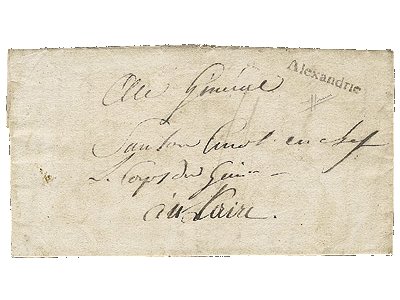 Alexandrie
Général
Sanson en chef
le Corps du Génie
au Kaire.